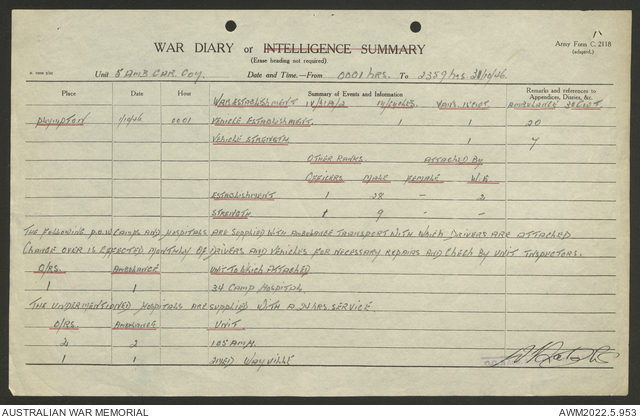 WAR DIARY or INTELLIGENCE SUMMARY
Army Form C. 2118
(adapted.)
(Erase heading not required).
Unit 8 AMB CAR COY. Date and Time.—From 0001 HRS. To 2359 HRS
Place Date Hour Summary of Events and Information Remarks and references to Appendices, Diaries, &c.
WAR ESTABLISHMENT AMBULANCE
PLYMPTON 1/10/46 0001 VEHICLE ESTABLISHMENT. 1 1 20
VEHICLE STRENGTH 1 7
OTHER RANKS. ATTACHED BY
OFFICERS MALE FEMALE
ESTABLISHMENT 1 28 - 2
STRENGTH 1 9 - -
THE FOLLOWING P.O.W CAMPS AND HOSPITALS ARE SUPPLIED WITH AMBULANCE TRANSPORT WITH WHICH DRIVERS ARE ATTACHED
CHANGE OVER IS EFFECTED MONTHLY OF DRIVERS AND VEHICLES FOR NECESSARY REPAIRS AND CHECK BY UNIT INSPECTORS.
O/RS. AMBULANCE UNIT TO WHICH ATTACHED
1 1 34 CAMP HOSPITAL
THE UNDERMENTIONED HOSPITALS ARE SUPPLIED WITH A 24 HRS SERVICE.
O/RS. AMBULANCE UNIT.
2 2 105 AMH.
1 1 WAYVILLE
AUSTRALIAN WAR MEMORIAL
AWM2022.5.953